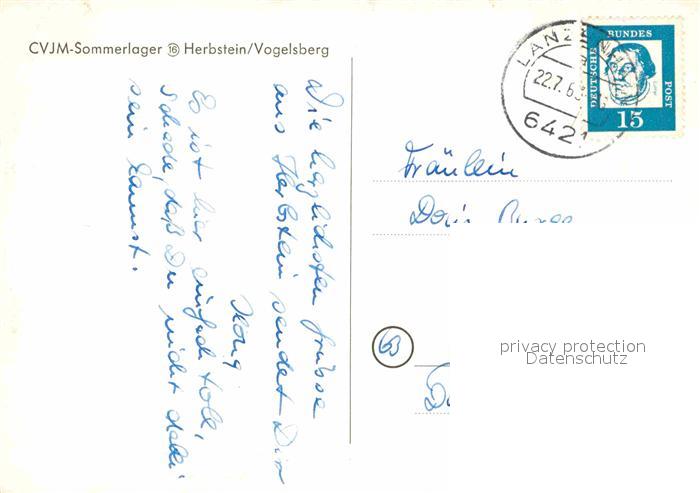 CVJM-Sommerlager ⑯ Herbstein/Vogelsberg
Die herzlichsten Grüsse
aus Herbstein sendet Dir
Es ist hier einfach toll,
schade, daß Du nicht dabei
sein kannst.
LANZ
22.7.6
642
DEUTSCHE BUNDES POST
15
Fräulein
privacy protection
Datenschutz